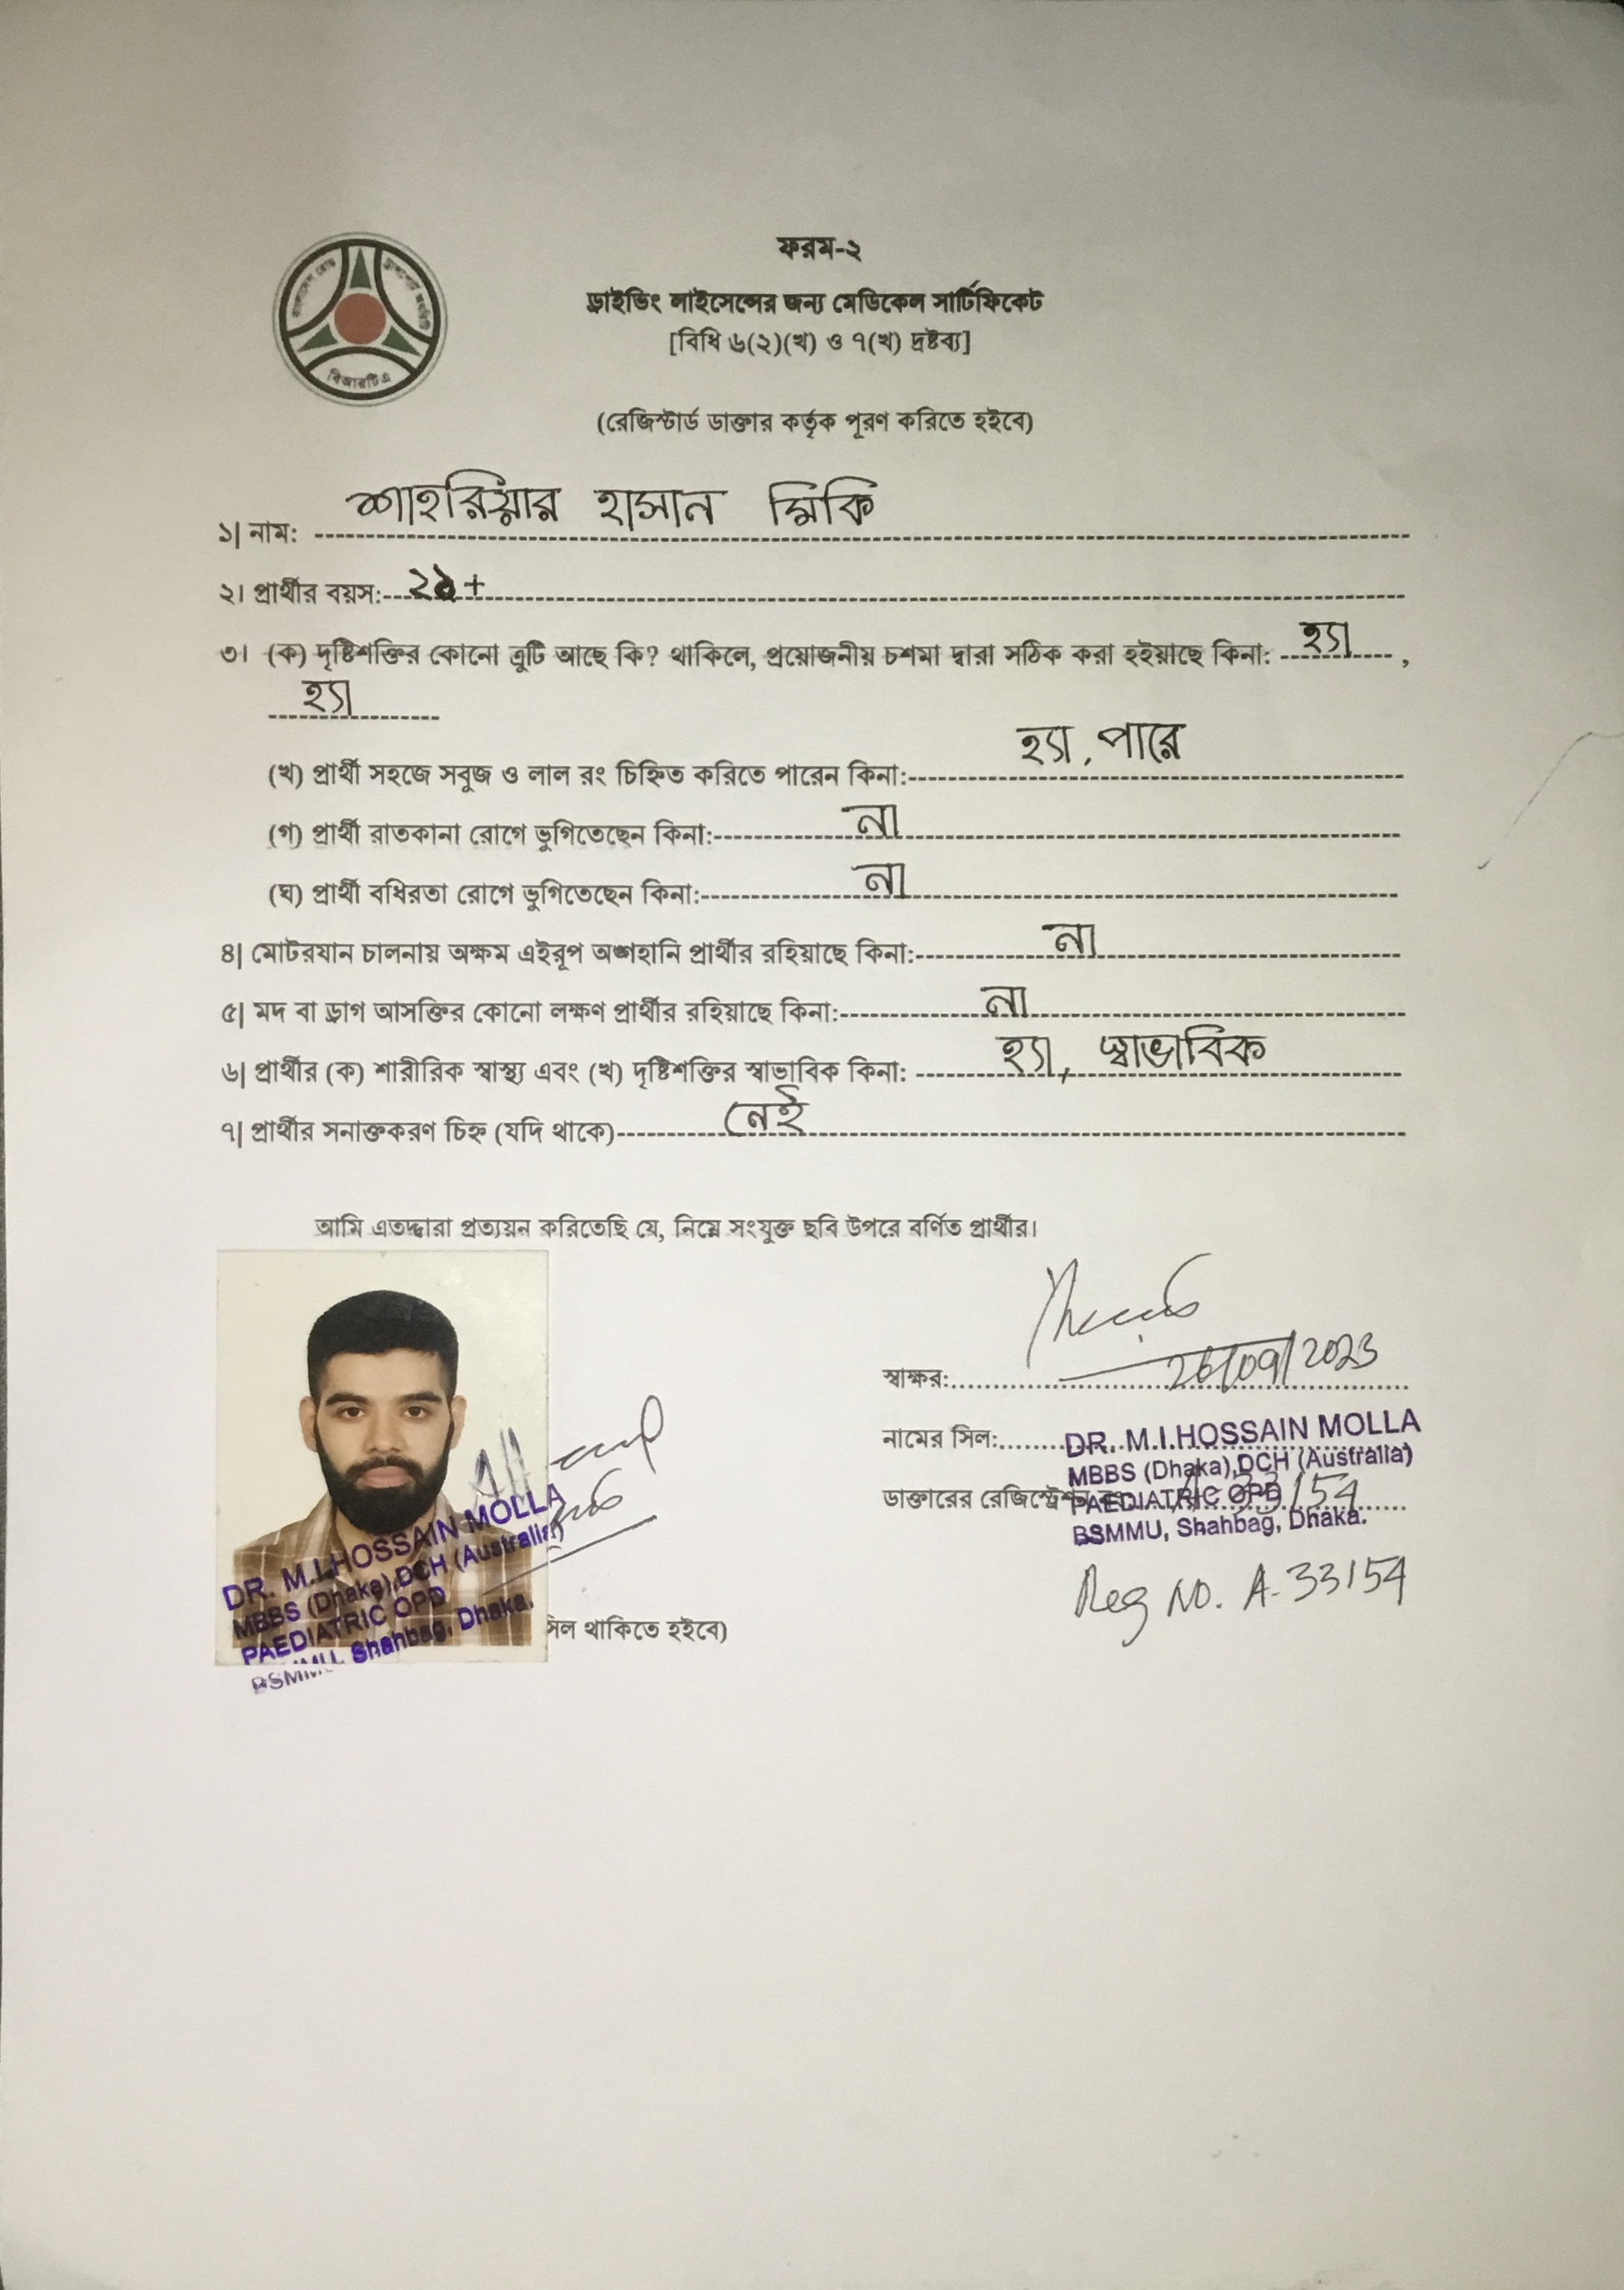 ফরম-২
ড্রাইভিং লাইসেন্সের জন্য মেডিকেল সার্টিফিকেট
[বিধি ৬(২)(খ) ও ৭(খ) দ্রষ্টব্য]
বিআরটিএ
(রেজিস্টার্ড ডাক্তার কর্তৃক পূরণ করিতে হইবে)
১| নাম: শাহরিয়ার হাসান মিকি
২। প্রার্থীর বয়স: ২১+
৩। (ক) দৃষ্টিশক্তির কোনো ত্রুটি আছে কি? থাকিলে, প্রয়োজনীয় চশমা দ্বারা সঠিক করা হইয়াছে কিনা: হ্যা,
হ্যা
(খ) প্রার্থী সহজে সবুজ ও লাল রং চিহ্নিত করিতে পারেন কিনা: হ্যা, পারে
(গ) প্রার্থী রাতকানা রোগে ভুগিতেছেন কিনা: না
(ঘ) প্রার্থী বধিরতা রোগে ভুগিতেছেন কিনা: না
৪| মোটরযান চালনায় অক্ষম এইরূপ অঙ্গহানি প্রার্থীর রহিয়াছে কিনা: না
৫| মদ বা ড্রাগ আসক্তির কোনো লক্ষণ প্রার্থীর রহিয়াছে কিনা: না
৬| প্রার্থীর (ক) শারীরিক স্বাস্থ্য এবং (খ) দৃষ্টিশক্তির স্বাভাবিক কিনা: হ্যা, স্বাভাবিক
৭| প্রার্থীর সনাক্তকরণ চিহ্ন (যদি থাকে) নেই
আমি এতদ্দ্বারা প্রত্যয়ন করিতেছি যে, নিম্নে সংযুক্ত ছবি উপরে বর্ণিত প্রার্থীর।
স্বাক্ষর: 26/09/2023
নামের সিল: DR. M.I.HOSSAIN MOLLA
MBBS (Dhaka),DCH (Australia)
ডাক্তারের রেজিস্ট্রেশন PAEDIATRIC OPD
BSMMU, Shahbag, Dhaka.
Reg NO. A-33154
DR. M.I.HOSSAIN MOLLA
MBBS (Dhaka),DCH (Australia)
PAEDIATRIC OPD
Shahbag, Dhaka.
সিল থাকিতে হইবে)